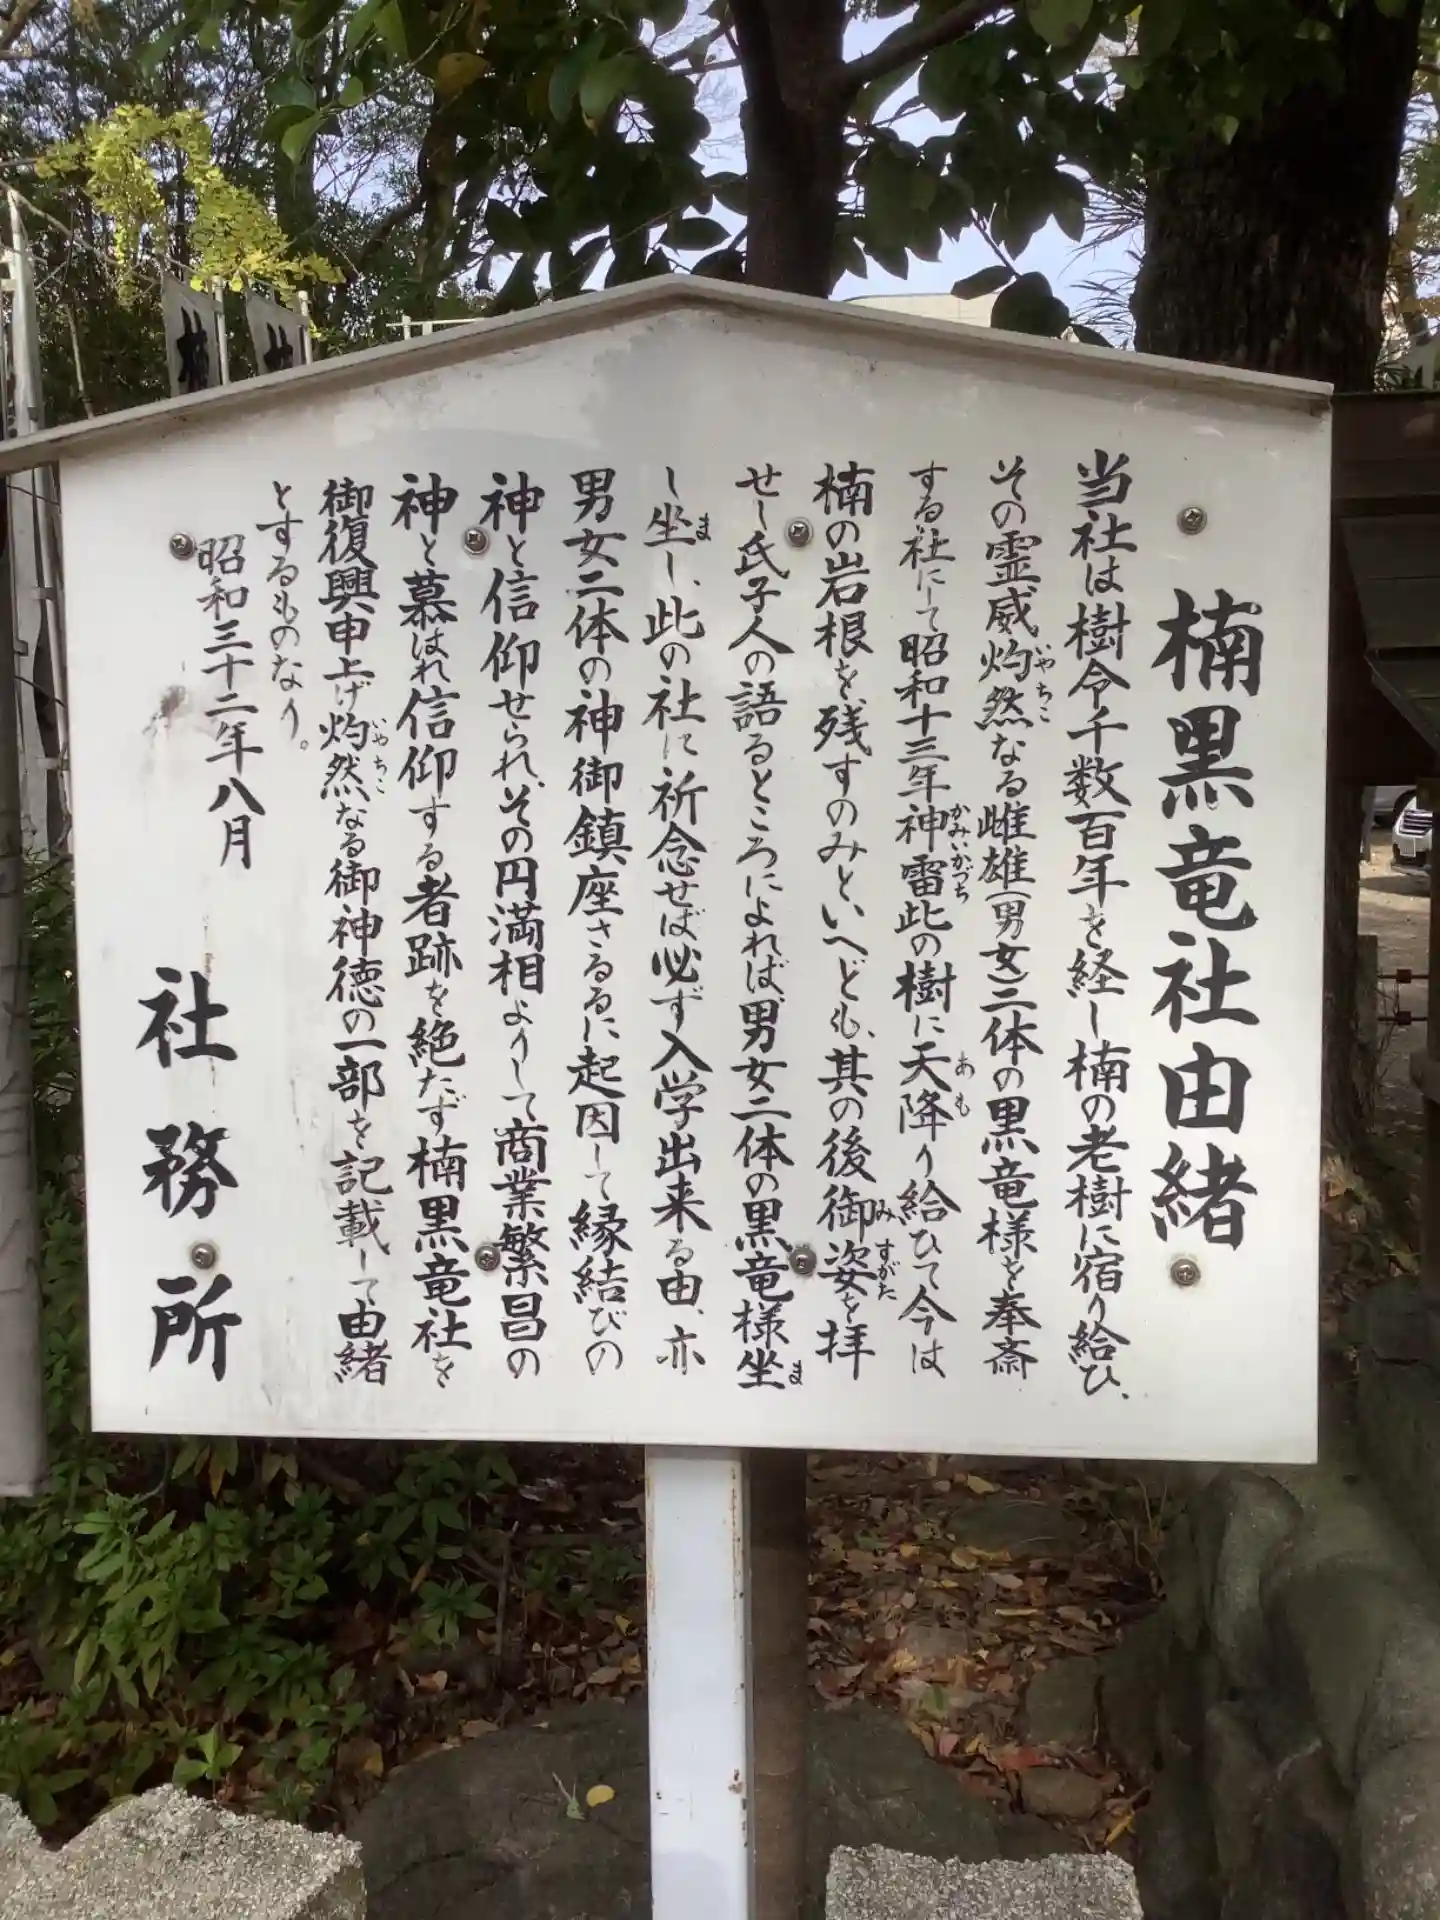 楠黒竜社由緒
当社は樹令千数百年を経し楠の老樹に宿り給ひ、
その霊威灼然なる雌雄(男女)二体の黒竜様を奉斎
いやちこ
する社にして昭和十三年神雷此の樹に天降り給ひて今は
かみいかづち
あも
楠の岩根を残すのみといへども、其の後御姿を拝
みすがた
せし氏子人の語るところによれば、男女二体の黒竜様坐
ま
し坐し、此の社に祈念せば必ず入学出来る由、亦
ま
男女二体の神御鎮座さるるに起因して縁結びの
神と信仰せられ、その円満相よりして商業繁昌の
神と慕はれ信仰する者跡を絶たず楠黒竜社を
御復興申上げ灼然なる御神徳の一部を記載して由緒
いやちこ
とするものなり。
昭和三十二年八月
社務所
楠